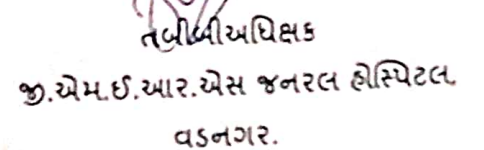 તબીબી અધિક્ષક
જી.એમ.ઈ.આર.એસ જનરલ હોસ્પિટલ,
વડનગર.